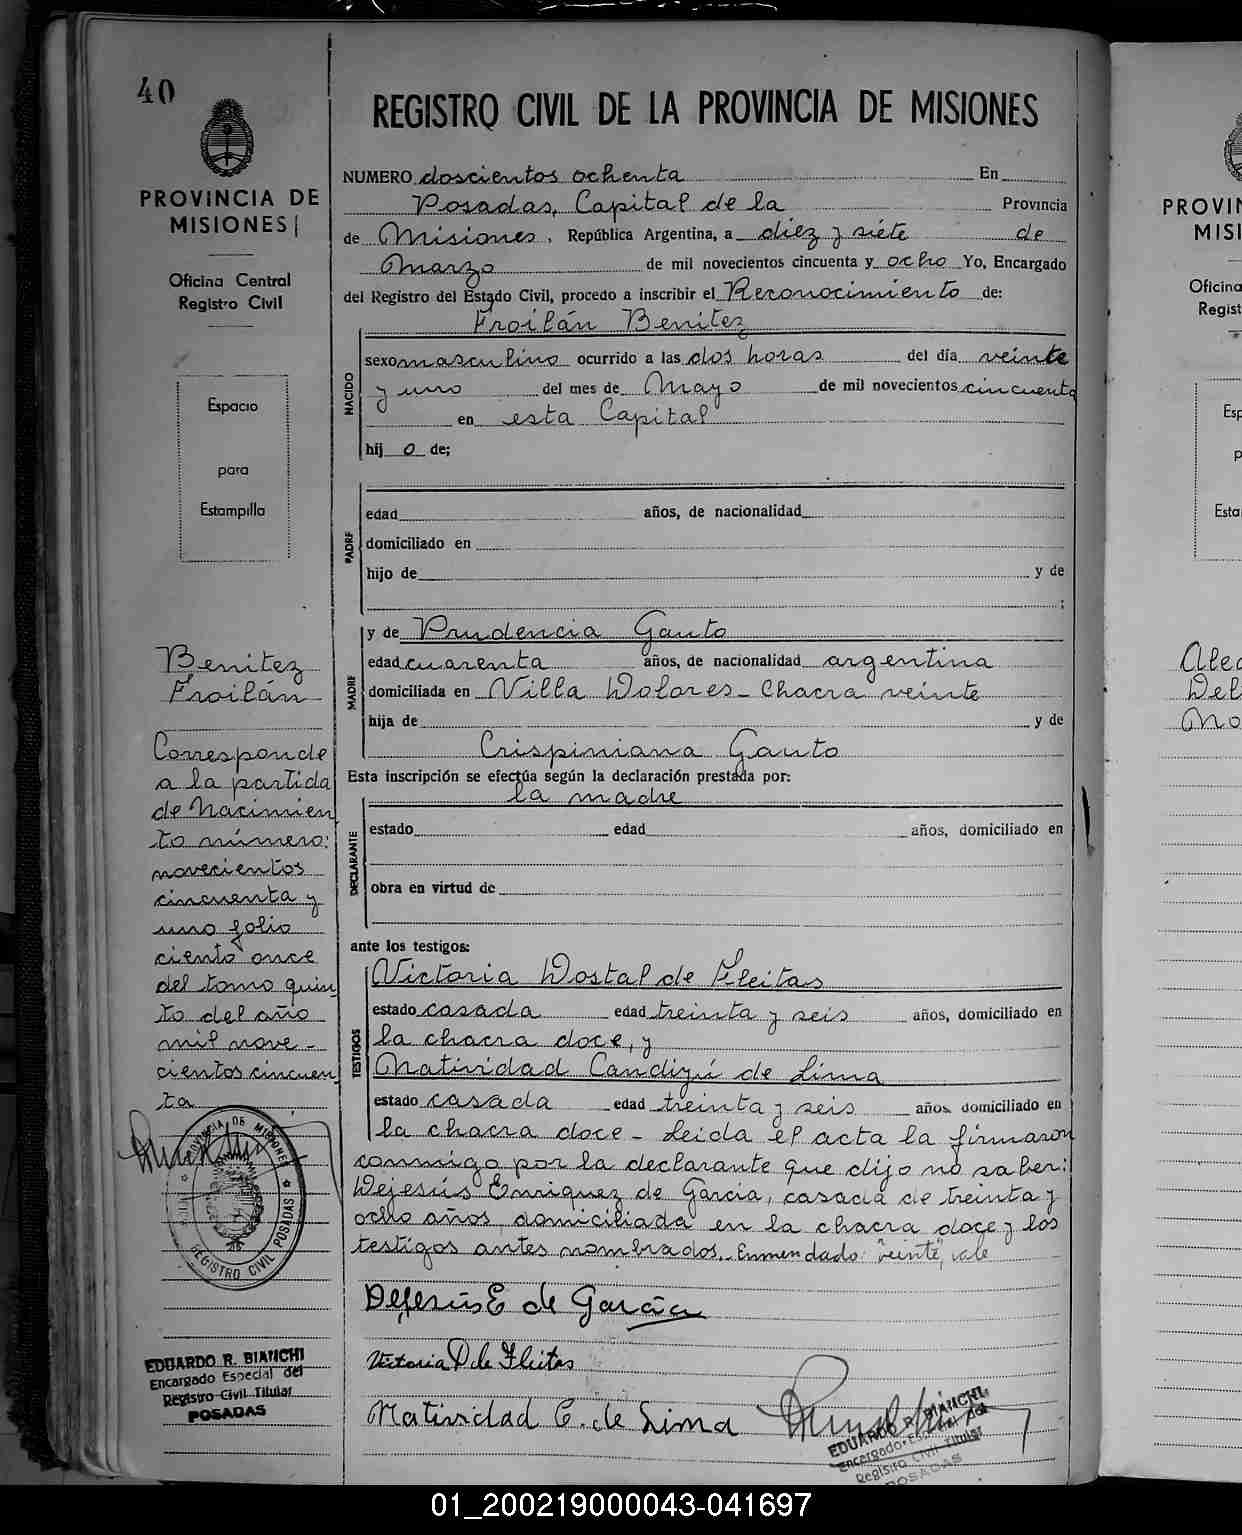 40
PROVINCIA DE
MISIONES
Oficina Central
Registro Civil
Espacio
para
Estampilla
Benitez
Froilán
Corresponde
a la partida
de Nacimien
to número:
novecientos
cincuenta y
uno folio
ciento once
del tomo quin
to del año
mil nove-
cientos cincuen
ta
PROVINCIA DE MISIONES
REGISTRO CIVIL POSADAS
EDUARDO R. BIANCHI
Encargado Especial del
Registro Civil Titular
POSADAS
REGISTRO CIVIL DE LA PROVINCIA DE MISIONES
NUMERO doscientos ochenta En
Posadas, Capital de la Provincia
de Misiones, República Argentina, a diez y siete de
Marzo de mil novecientos cincuenta y ocho Yo, Encargado
del Registro del Estado Civil, procedo a inscribir el Reconocimiento de:
Froilán Benitez
NACIDO
sexo masculino ocurrido a las dos horas del día veinte
y uno del mes de Mayo de mil novecientos cincuenta
en esta Capital
hij o de;
PADRE
edad años, de nacionalidad
domiciliado en
hijo de y de
;
MADRE
y de Prudencia Gauto
edad cuarenta años, de nacionalidad argentina
domiciliada en Villa Dolores - Chacra veinte
hija de y de
Crispiniana Gauto
Esta inscripción se efectúa según la declaración prestada por:
la madre
DECLARANTE
estado edad años, domiciliado en
obra en virtud de
ante los testigos:
TESTIGOS
Victoria Dostal de Fleitas
estado casada edad treinta y seis años, domiciliado en
la chacra doce, y
Natividad Candizú de Lima
estado casada edad treinta y seis años domiciliado en
la chacra doce - Leida el acta la firmaron
conmigo por la declarante que dijo no saber:
Dejesús Enriquez de Garcia, casada de treinta y
ocho años, domiciliada en la chacra doce y los
testigos antes nombrados. Enmendado: "veinte", vale
Dejesús E de Garcia
Victoria D de Fleitas
Natividad C. de Lima
EDUARDO R. BIANCHI
Encargado Especial del
Registro Civil Titular
POSADAS
PROVIN
MISI
Oficina
Regist
Esp
p
Esta
Alec
Del
Mo
01_200219000043-041697